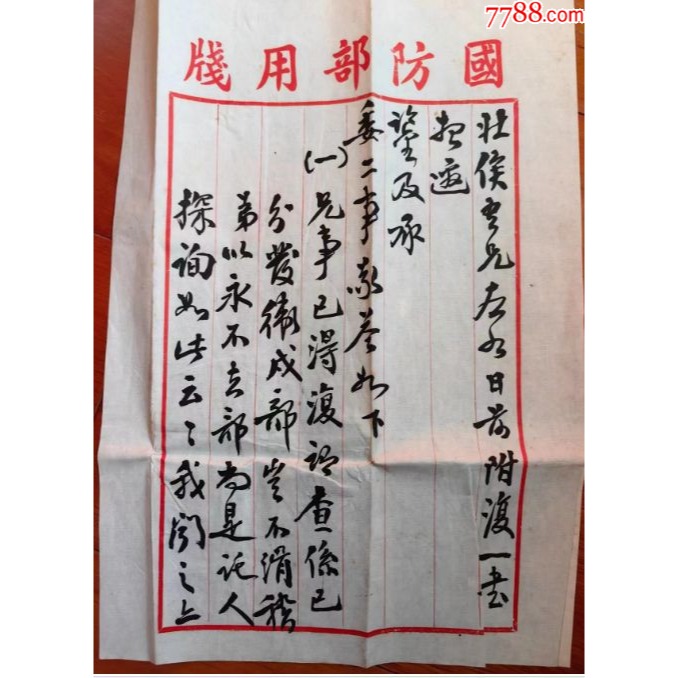 7788.com
國防部用牋
壯侯吾兄左右日前附復一書
想邀
鑒及承
委二事敬答如下
(一)兄事已得復謂查係已
分發衛戍部豈不滑稽
弟以永不去部尚是託人
探詢如此云〻我閣之上